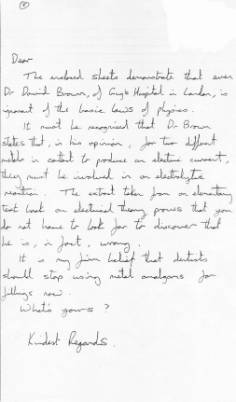 Dear
The enclosed sheets demonstrate that even
Dr David Brown, of Guy's Hospital in London, is
ignorant of the basic laws of physics.
It must be recognised that Dr Brown
states that, in his opinion, for two different
metals in contact to produce an electric current,
they must be involved in an electrolytic
reaction. The extract taken from an elementary
text book on electrical theory proves that you
do not have to look far to discover that
he is, in fact, wrong.
It is my firm belief that dentists
should stop using metal amalgams for
fillings now.
What's yours?
Kindest Regards.